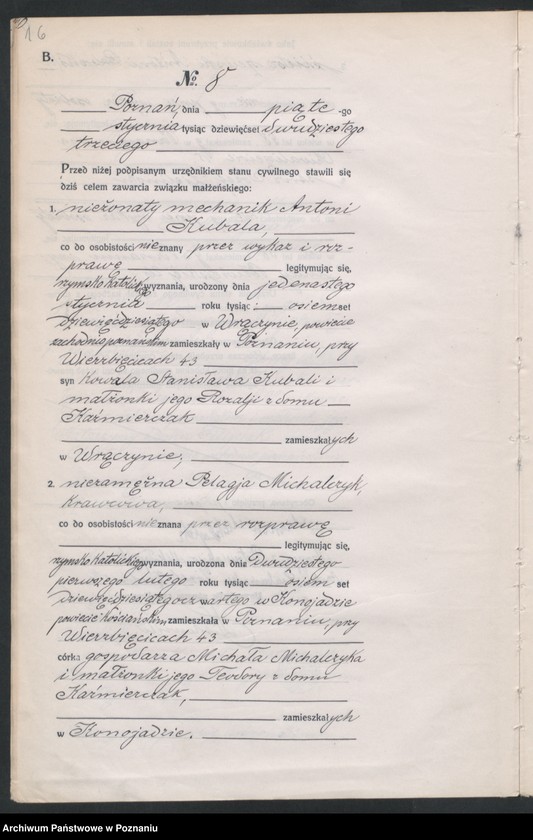 16
B.
№ 8
Poznań, dnia piąte -go
stycznia tysiąc dziewięćset dwudziestego
trzeciego
Przed niżej podpisanym urzędnikiem stanu cywilnego stawili się
dziś celem zawarcia związku małżeńskiego:
1. nieżonaty mechanik Antoni
Kubala,
co do osobistości nieznany przez wykaz i roz-
prawę legitymując się,
rzymsko katolickiego wyznania, urodzony dnia jedenastego
stycznia roku tysiąc osiemset
dziewięćdziesiątego w Wrączynie, powiecie
zachodnio poznańskim zamieszkały w Poznaniu, przy
Wierzbięcicach 43
syn Kowala Stanisława Kubali i
małżonki jego Rozalji z domu
Kaźmierczak
zamieszkałych
w Wrączynie,
2. niezamężna Pelagja Michalczyk,
krawcowa,
co do osobistości nieznana przez rozprawę
legitymując się,
rzymsko katolickiego wyznania, urodzona dnia Dwudziestego
pierwszego lutego roku tysiąc osiem set
dziewięćdziesiątego czwartego w Konojadzie
powiecie Kościańskim zamieszkała w Poznaniu, przy
Wierzbięcicach 43
córka gospodarza Michała Michalczyka
i małżonki jego Teodory z domu
Kaźmierczak,
zamieszkałych
w Konojadzie.
Archiwum Państwowe w Poznaniu